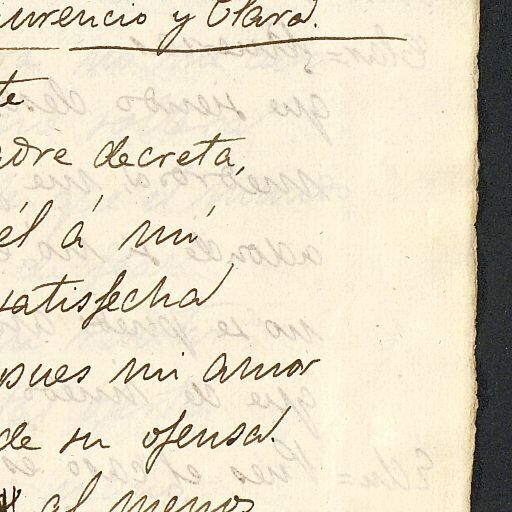 urencio y Clara.
te
adre decreta,
él á mí
satisfecha
pues mi amor
de su ofensa.
al menos